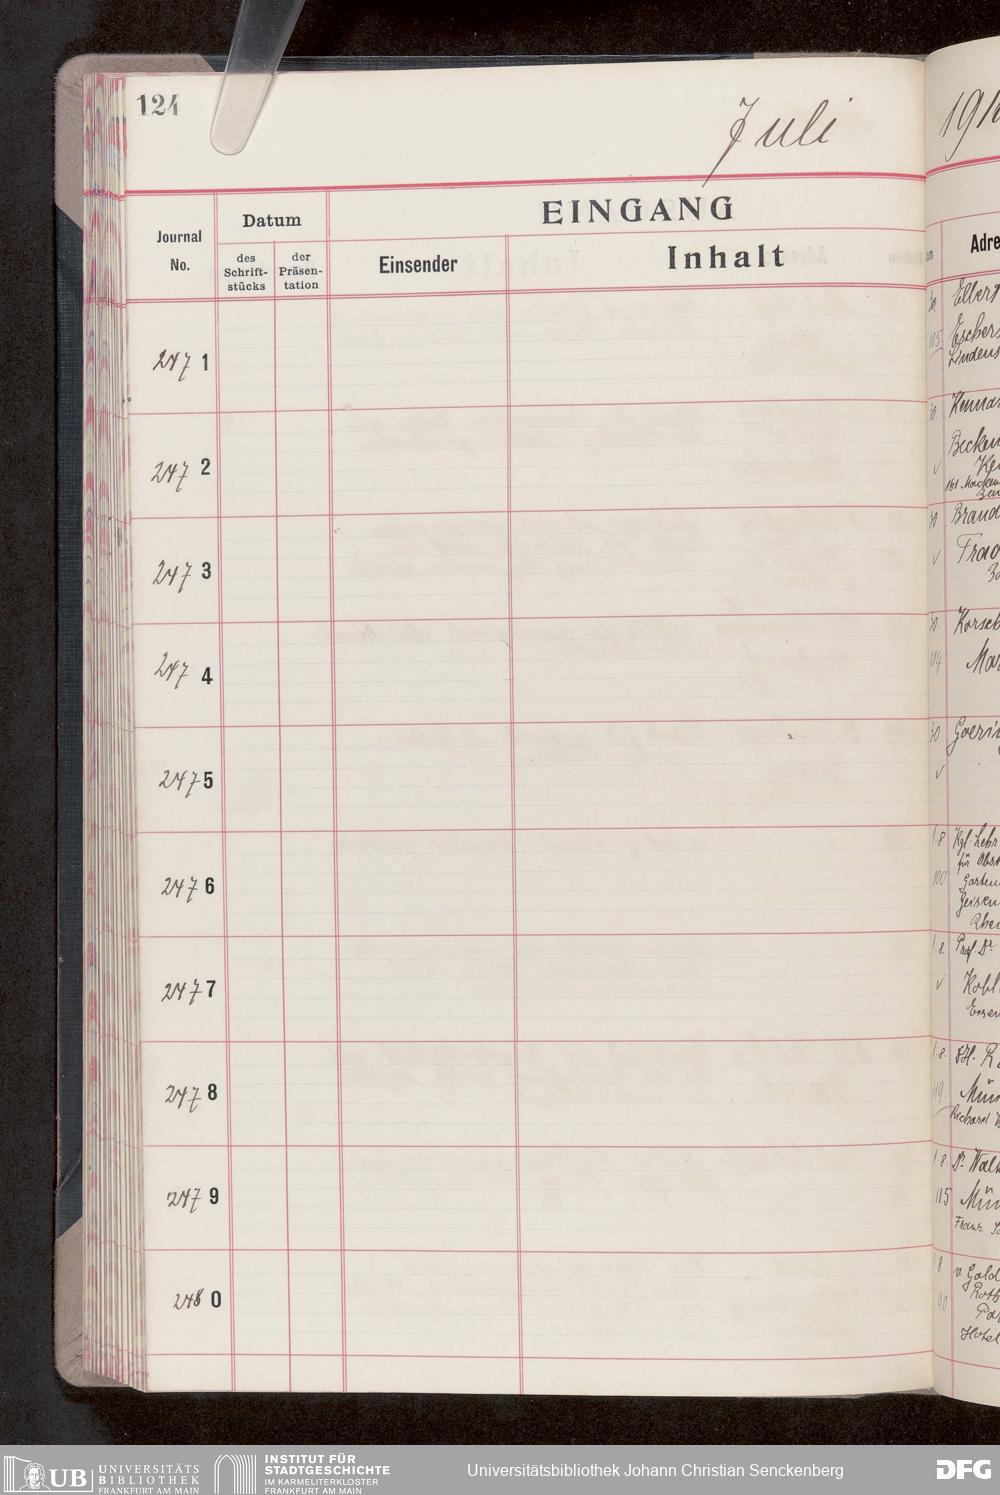 124
Juli
Journal
No.
Datum
des
Schrift-
stücks
der
Präsen-
tation
EINGANG
Einsender
Inhalt
247 1
247 2
247 3
247 4
247 5
247 6
247 7
247 8
247 9
248 0
191
Adre
30
Elbert
105
Eschers
Lindens
30
Becken
30
Brand
30
114
Mar
30
1.8
Kgl. Lehr
für Obst
100
Garten
Geisen
Rhei
1.8.
Prof. Dr
Kohl
1.8.
119.
Mün
Richard W
1.8
Dr. Walt
115
Mün
Franz
8
v. Gold
Roth
90
Par
Hotel
UB
UNIVERSITÄTS
BIBLIOTHEK
FRANKFURT AM MAIN
INSTITUT FÜR
STADTGESCHICHTE
IM KARMELITERKLOSTER
FRANKFURT AM MAIN
Universitätsbibliothek Johann Christian Senckenberg
DFG